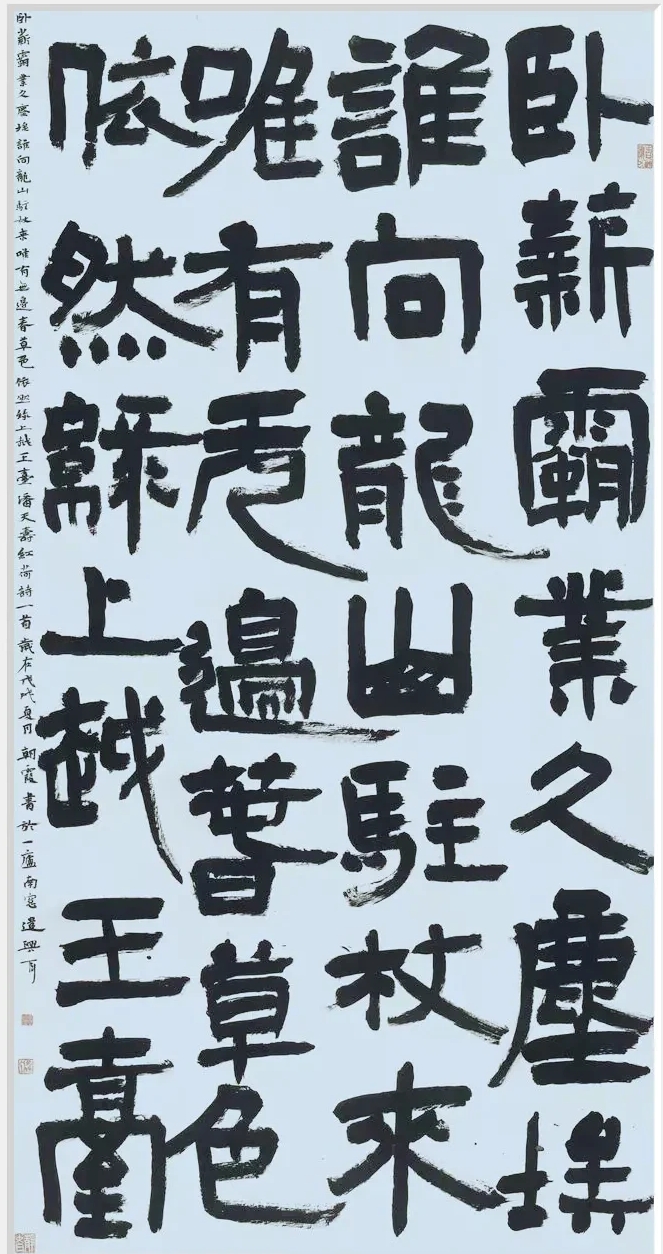 臥薪霸業久塵埃
誰向龍山駐杖來
唯有無邊春草色
依然綠上越王臺
臥薪霸業久塵埃誰向龍山駐杖來唯有無邊春草色依然綠上越王臺潘天壽紅荷詩一首歲在戊戌夏月朝霞書於一廬南窗遣興耳